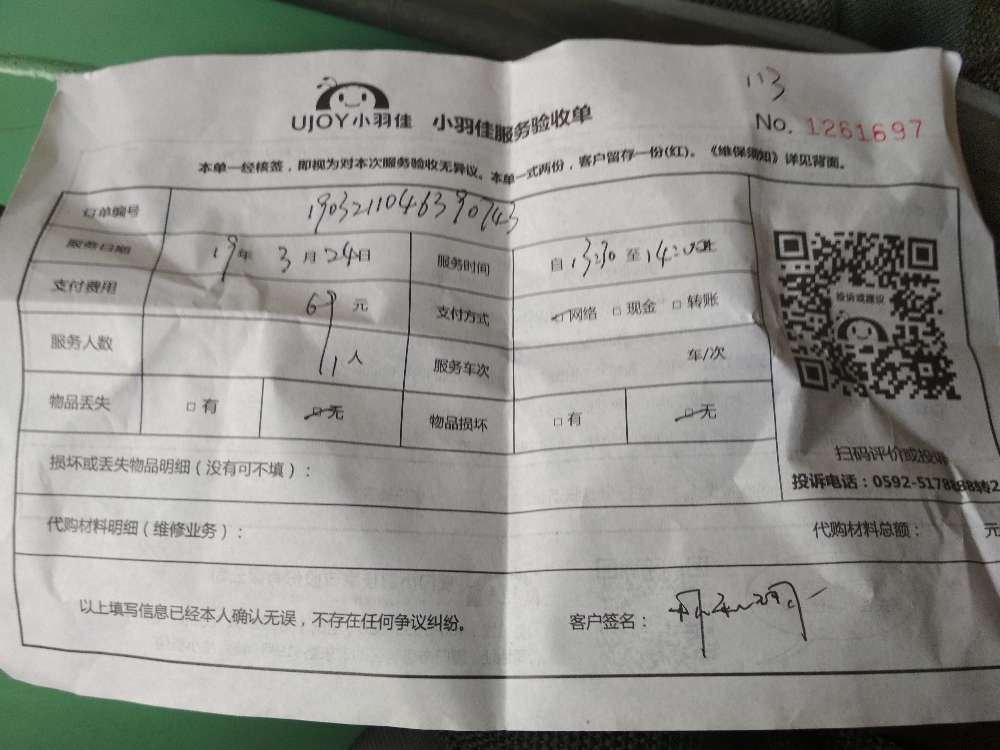 113
UJOY小羽佳 小羽佳服务验收单
No. 1261697
本单一经核签，即视为对本次服务验收无异议。本单一式两份，客户留存一份(红)。《维保须知》详见背面。
订单编号 1903211046390743
服务日期 19年 3月 24日 服务时间 自 13:30 至 14:00止
支付费用 69 元 支付方式 □网络 □现金 □转账
服务人数 1 人 服务车次 车/次
物品丢失 □有 □无 物品损坏 □有 □无
投诉或建议
扫码评价或投诉
投诉电话：0592-5178888转2
损坏或丢失物品明细（没有可不填）：
代购材料明细（维修业务）： 代购材料总额： 元
以上填写信息已经本人确认无误，不存在任何争议纠纷。 客户签名：